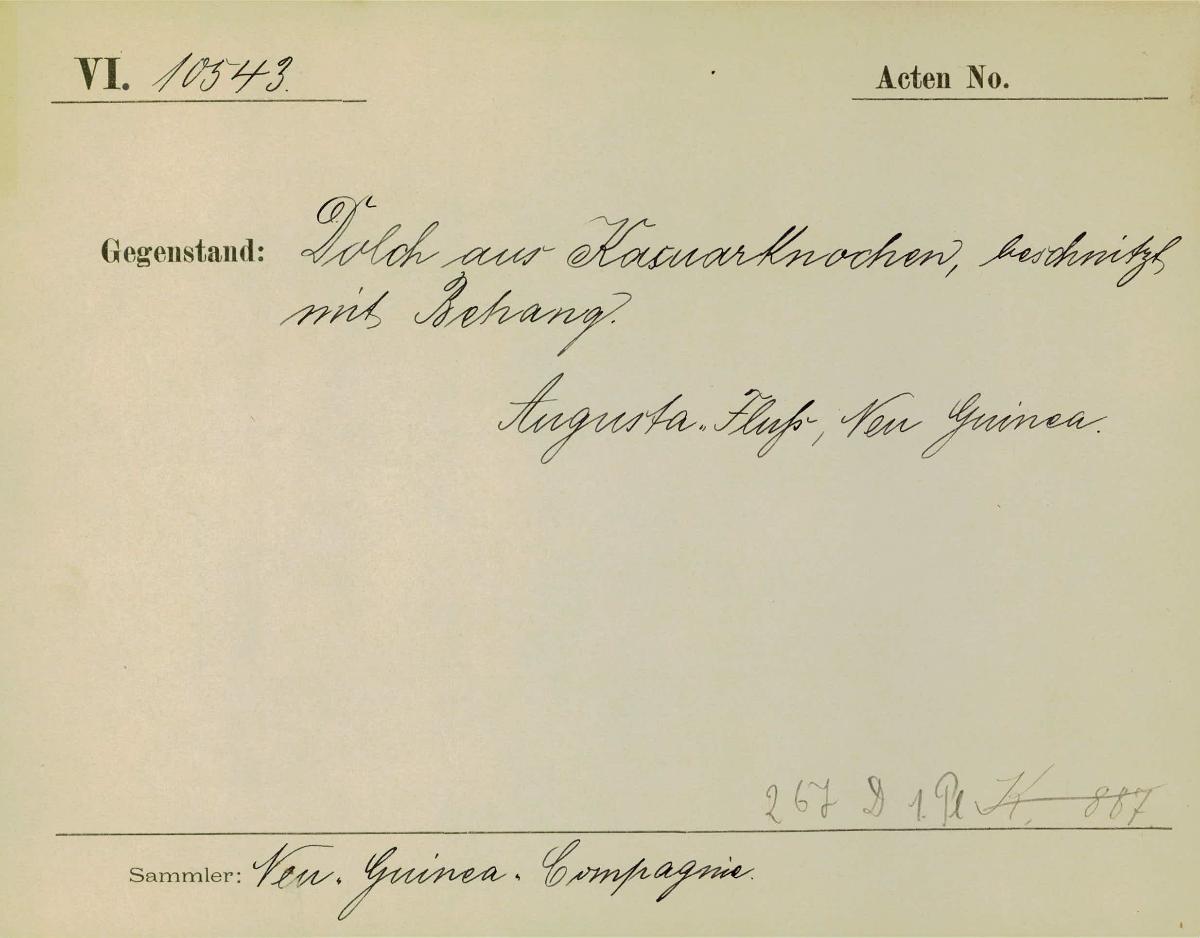 VI. 10543.
Acten No.
Gegenstand: Dolch aus Kasuarknochen, beschnitzt
mit Behang.
Augusta-Fluß, Neu Guinea.
267 D 1. Pl K. 887.
Sammler: Neu-Guinea-Compagnie.